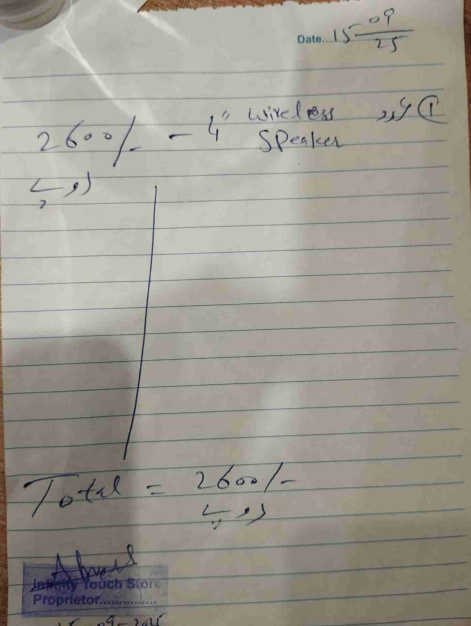 Date...15-09/25
① عدد 4" wireless
Speaker
2600/- -
روپے
Total = 2600/-
روپے
Infinity Touch Store
Proprietor...............
15-09-2025